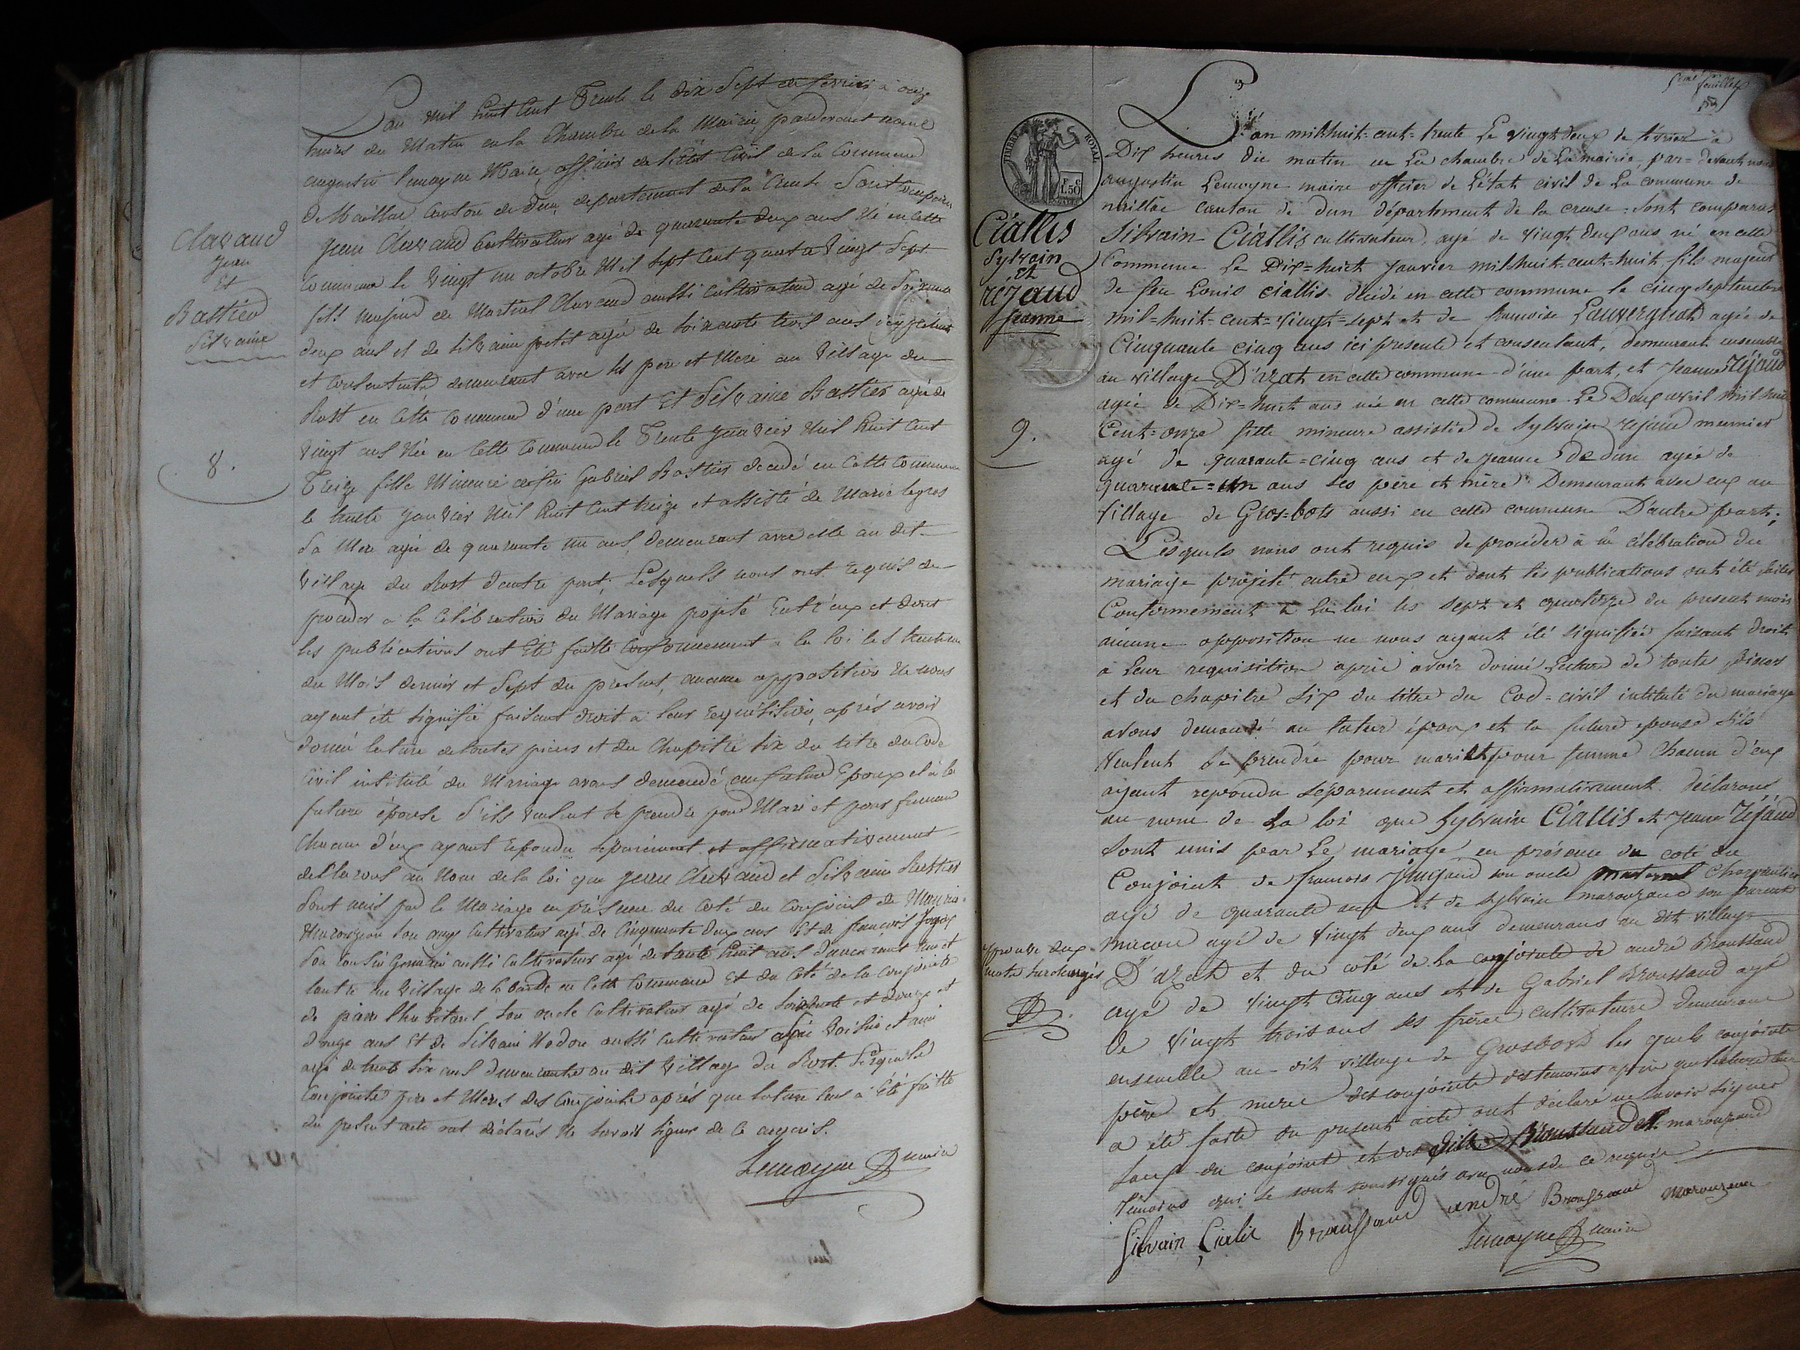 Clavaud
Jean
Et
Bastier
Silvaine
8.
L'an mil huit cent Trente le dix Sept de fevrier à onze
heures du Matin en la Chambre de la Mairie pardevant nous
augustin Lemoyne Maire officier de l'état Civil de la Commune
de Maillac Canton de Dun, departement de la Creuse Sont comparus
Jean Clavaud Cultivateur agé de quarante deux ans Né en Cette
Commune le Vingt un octobre Mil Sept Cent quatre Vingt Sept
fils majeur de Martial Clavaud aussi Cultivateur agé de Soixante
deux ans et de Silvaine petit agée de soixante trois ans ici présents
et Consentents demeurant avec ses père et Mere au Village du
Rost en Cette Commune d'une part Et Silvaine Bastier agée de
vingt ans Née en Cette Commune le Trente Janvier Mil Huit Cent
Treize fille Mineure de feu Gabriel Bastier decedé en Cette Commune
le huit Janvier Mil huit Cent treize et assistée de Marie legros
Sa Mere agée de quarante un ans demeurant avec elle au dit
Village du Rost d'autre part; Lesquels nous ont requis de
proceder à la Célébration du Mariage projeté Entr'eux et dont
les publications ont Eté faites Conformement à la loi les trente un
du Mois dernier et Sept du présent, aucune opposition Ne nous
ayant été signifié faisant droit à leur requisition, après avoir
donné lecture de toutes pieces et du Chapitre six du titre du Code
Civil intitulé du Mariage avons demandé au futur Epoux et à la
future épouse S'ils veulent Se prendre pour Mari et pour femme
Chacun d'eux ayant répondu séparément et affirmativement
declarons au Nom de la loi que Jean Clavaud et Silvaine Bastier
Sont unis par le Mariage en présence du Coté du Conjoint de Maurice
Son Cultivateur agé de Cinquante deux ans Et de francois
Son Cousin Germain aussi Cultivateur agé de trente huit ans demeurant
au Village de la en Cette Commune Et du Coté de la Conjointe
de pierre Son oncle Cultivateur agé de Soixante et
douze ans Et de Silvain Nadou aussi Cultivateur Voisin et ami
agé de trente Six ans demeurants au dit Village du Rost. Lesquels
Conjoints père et Meres des Conjoints après que lecture leur à Eté faitte
du présent acte ont déclarés Ne Savoir Signer de Ce enquis.
Lemoyne Maire
5me feuillet
TIMBRE ROYAL
F. 1.50
Ciallis
Sylvain
et
réjaud
Jeanne
9.
approuvé deux
mots surchargés
L'an mil-huit-cent-trente Le vingt deux de fevrier à
Dix heures du matin en La chambre de La mairie par-devant nous
augustin Lemoyne maire officier de L'état civil de La commune de
maillac canton de dun département de la creuse Sont comparus
Silvain Ciallis cultivateur, agé de vingt deux ans né en cette
Commune Le Dix-huit janvier mil-huit-cent-huit fils majeur
de feu Louis Ciallis décédé en cette commune le cinq septembre
mil-huit-cent-vingt-sept et de françoise Lauvergnat agée de
Cinquante cinq ans ici presente et consentant, demeurant ensemble
au village D'azat en cette commune d'une part, et Jeanne Réjaud
agée de Dix-huit ans née en cette commune Le Deux avril mil huit
Cent-onze fille mineure assistée de Sylvain réjaud meunier
agé de quarante-cinq ans et de jeanne dedun agée de
quarante-un ans Ses père et mère Demeurant avec eux au
Village de Gros-bots aussi en cette commune D'autre part;
Lesquels nous ont requis de procéder à la célébration du
mariage projeté entre eux et dont les publications ont été faites
Conformement à La loi les sept et quatorze du present mois
aucune opposition ne nous ayant été signifiée faisant droit
à Leur requisition après avoir donné Lecture de toutes pieces
et du chapitre six du titre du Cod-civil intitulé du mariage
avons demandé au futur époux et la future épouse s'ils
veulent se prendre pour mari et pour femme Chacun d'eux
ayant repondu séparement et affirmativement déclarons
au nom de La loi que Sylvain Ciallis et Jeanne Réjaud
Sont unis par Le mariage en présence du coté du
Conjoint de francois son oncle maternel Charpentier
agé de quarante ans et de Sylvain marouzeaud son parent
macon agé de vingt deux ans demeurans au dit village
D'azat et du coté de La conjointe de andré Broussaud
agé de vingt cinq ans et de Gabriel Broussaud agé
de vingt trois ans Ses frères cultivateurs demeurant
ensemble au dit village de Grosbots les quels conjoints
père et mere des conjoints et temoins après que lecture leur
a été faite du present acte ont déclaré ne savoir signer
Sauf du conjoint et des dits Broussaud et marouzeaud
Témoins qui se sont soussignés avec nous de ce requis
Silvain Cialis Broussaud andré Broussaud Marouzeau
Lemoyne Maire